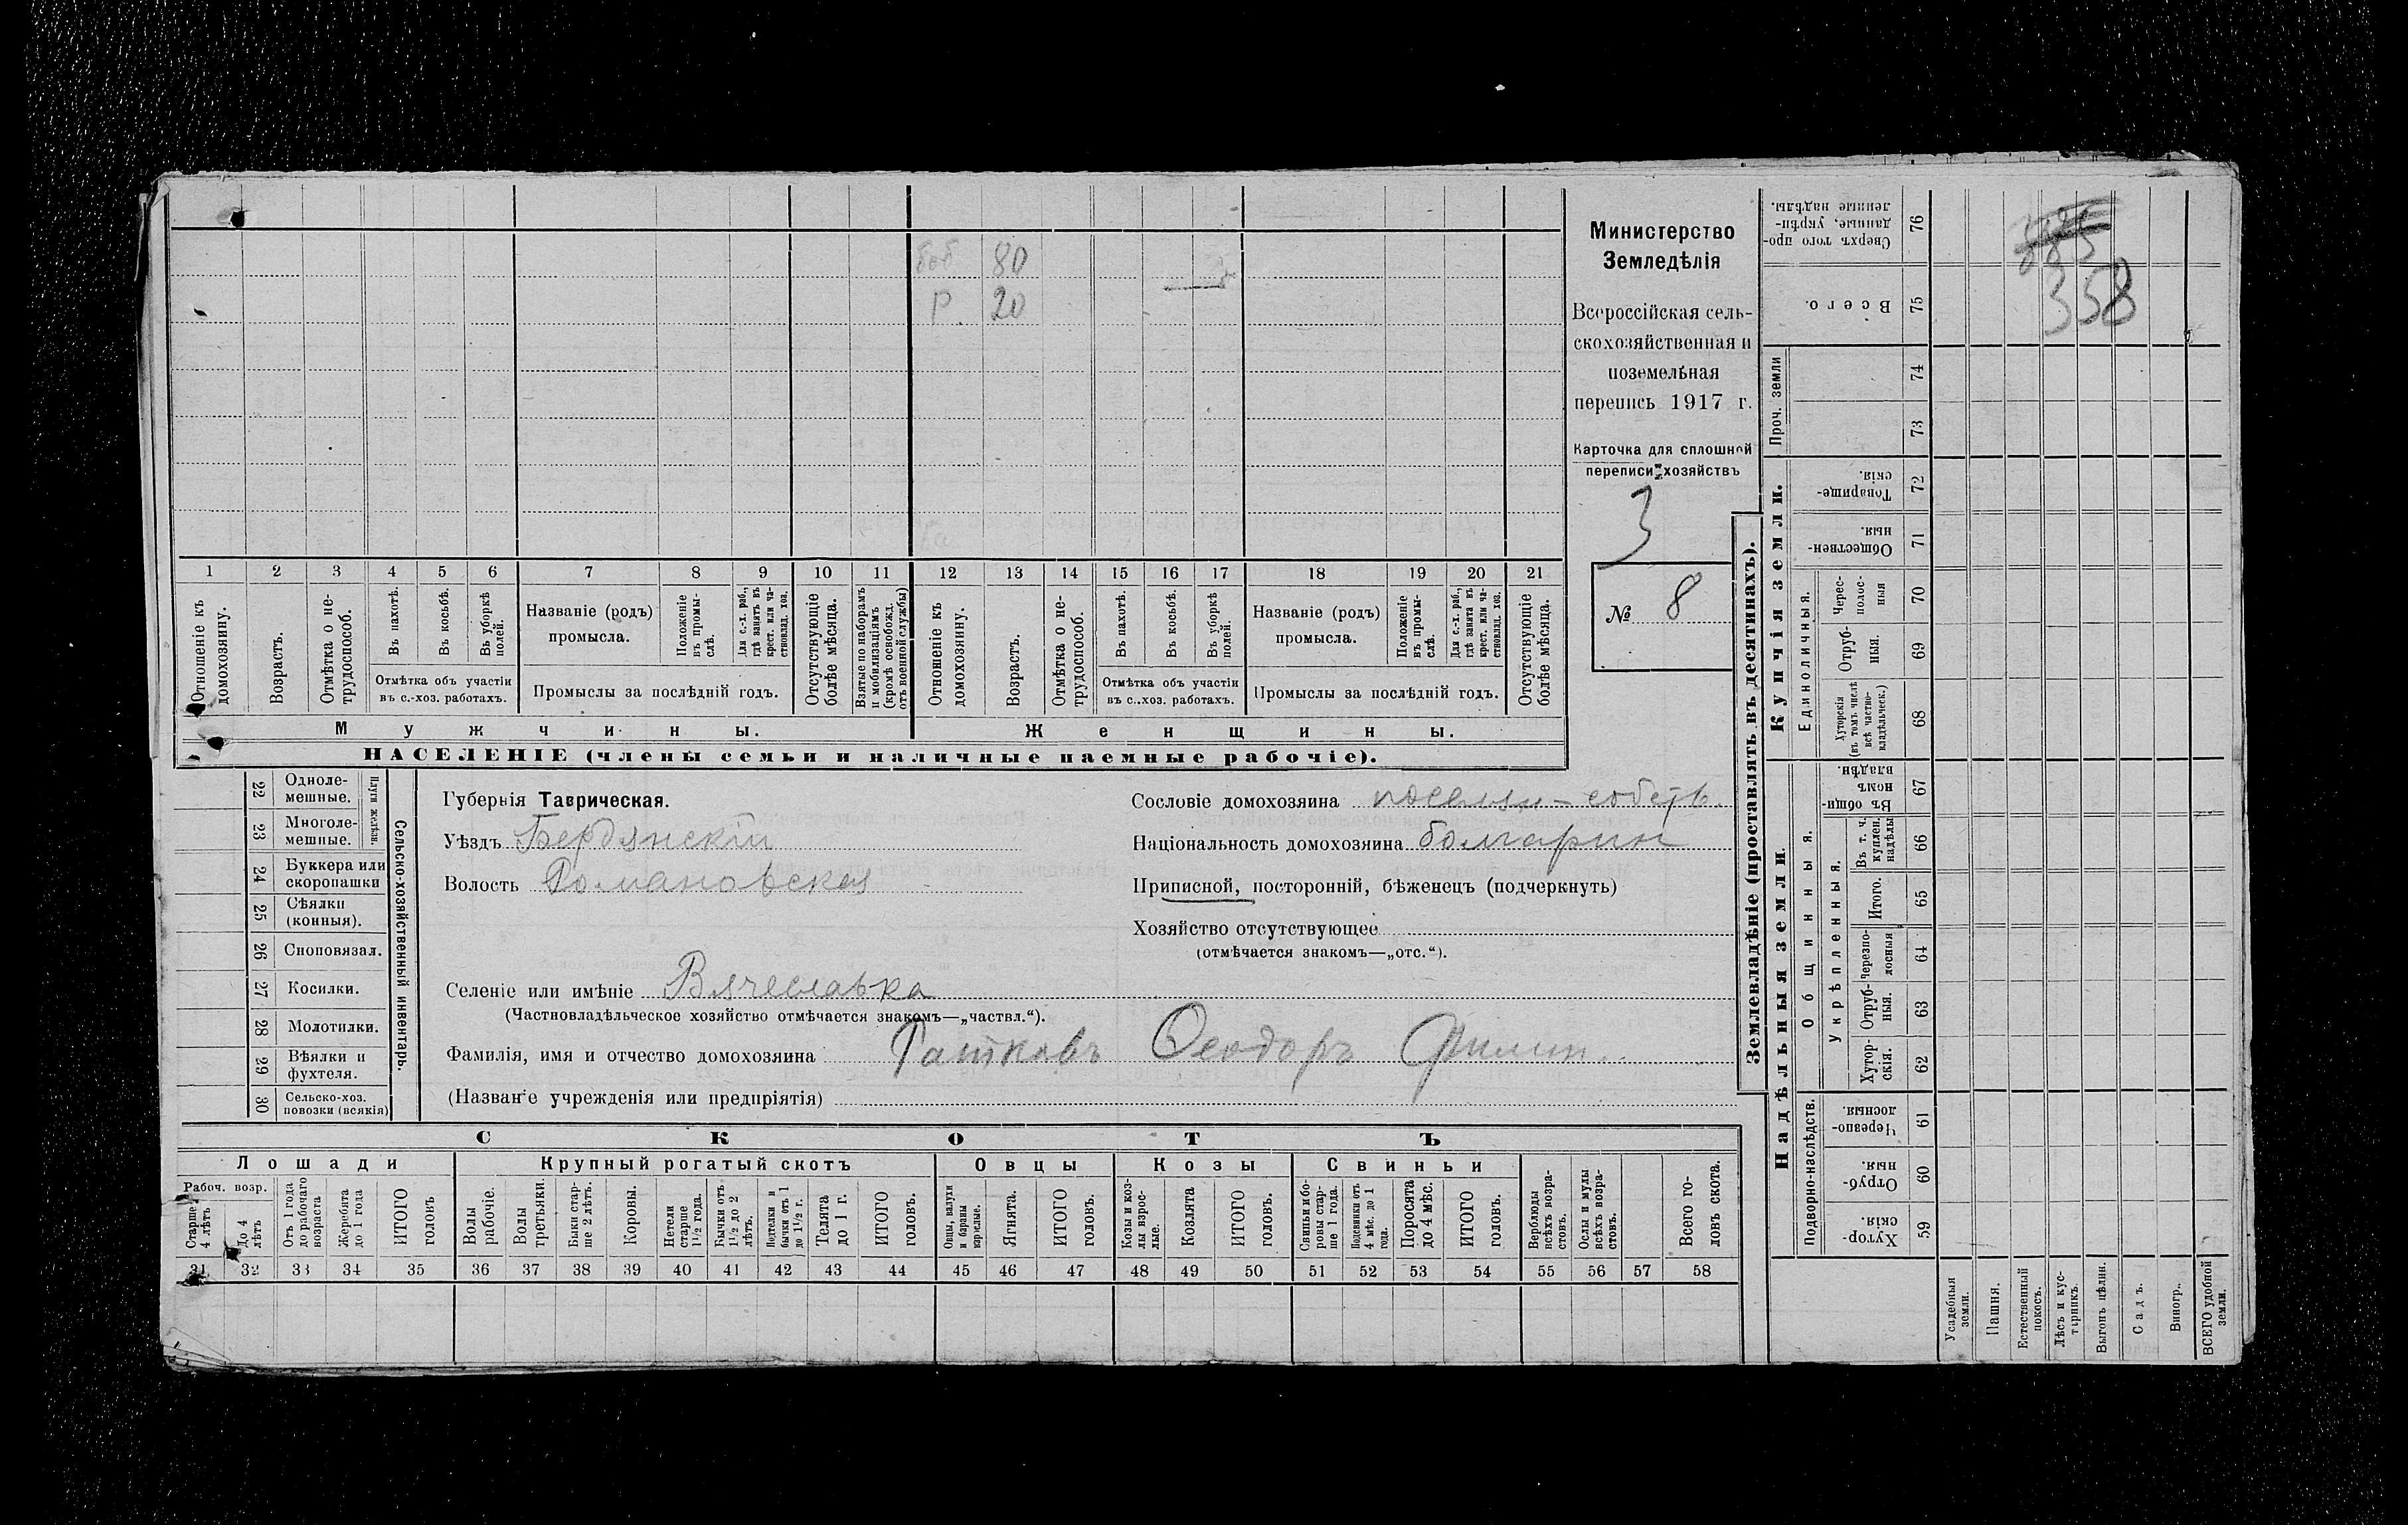 баб 80
р. 20
Министерство
Земледѣлія
Всероссійская сель-
скохозяйственная и
поземельная
перепись 1917 г.
Карточка для сплошной
переписи хозяйствъ
3
№ 8
1 2 3 4 5 6 7 8 9 10 11 12 13 14 15 16 17 18 19 20 21
Отношеніе къ домохозяину.
Возрастъ.
Отмѣтка о не-трудоспособ.
Въ пахотѣ.
Въ косьбѣ.
Въ уборкѣ полей.
Отмѣтка объ участіи
въ с.-хоз. работахъ.
Названіе (родъ)
промысла.
Положеніе въ промы-слѣ.
Для с.-х. раб., гдѣ занятъ въ крест. или ча-стновлад. хоз.
Промыслы за послѣдній годъ.
Отсутствующіе болѣе мѣсяца.
Взятые по наборамъ и мобилизаціямъ (кромѣ освобожд. отъ военной службы)
Отношеніе къ домохозяину.
Возрастъ.
Отмѣтка о не-трудоспособ.
Въ пахотѣ.
Въ косьбѣ.
Въ уборкѣ полей.
Отмѣтка объ участіи
въ с..хоз. работахъ.
Названіе (родъ)
промысла.
Положеніе въ промы-слѣ.
Для с.-х. раб., гдѣ занята въ крест. или ча-стновлад. хоз.
Промыслы за послѣдній годъ.
Отсутствующіе болѣе мѣсяца.
Мужчины.
Женщины.
НАСЕЛЕНІЕ (члены семьи и наличные наемные рабочіе).
22 Одноле-мешные.
23 Многоле-мешные.
Плуги желѣзн.
24 Буккера или скоропашки
25 Сѣялки (конныя).
26 Сноповязал.
27 Косилки.
28 Молотилки.
29 Вѣялки и фухтеля.
30 Сельско-хоз. повозки (всякія)
Сельско-хозяйственный инвентарь.
Губернія Таврическая.
Уѣздъ Бердянскій
Волость Романовская
Селеніе или имѣніе Вячеславка
(Частновладѣльческое хозяйство отмѣчается знакомъ—„частвл.“).
Фамилія, имя и отчество домохозяина Ратковъ Ѳеодоръ Филип.
(Названіе учрежденія или предпріятія)
Сословіе домохозяина поселян-собств.
Національность домохозяина болгарин
Приписной, посторонній, бѣженецъ (подчеркнуть)
Хозяйство отсутствующее
(отмѣчается знакомъ—„отс.“).
СКОТЪ
Лошади
Крупный рогатый скотъ
Овцы
Козы
Свиньи
Рабоч. возр.
Старше 4 лѣтъ
До 4 лѣтъ
Отъ 1 года до рабочаго возраста
Жеребята до 1 года
ИТОГО головъ
Волы рабочіе.
Волы третьяки.
Быки стар-ше 2 лѣтъ.
Коровы.
Нетели старше 1½ года.
Бычки отъ 1½ до 2 лѣтъ.
Нетелки и бычки отъ 1 до 1½ г.
Телята до 1 г.
ИТОГО головъ.
Овцы, валухи и бараны взрослые.
Ягнята.
ИТОГО головъ.
Козы и коз-лы взрос-лые.
Козлята
ИТОГО головъ.
Свиньи и бо-ровы стар-ше 1 года.
Подсвинки отъ 4 мѣс. до 1 года.
Поросята до 4 мѣс.
ИТОГО головъ.
Верблюды всѣхъ возра-стовъ.
Ослы и мулы всѣхъ возра-стовъ.
Всего го-ловъ скота.
31 32 33 34 35 36 37 38 39 40 41 42 43 44 45 46 47 48 49 50 51 52 53 54 55 56 57 58
Землевладѣніе (проставлять въ десятинахъ).
Сверхъ того про-данные, укрѣп-ленные надѣлы. 76
Всего. 75
Проч. земли
74
73
Купчія земли.
Товарище-скія. 72
Обществен-ныя. 71
Единоличныя.
Черес-полос-ныя 70
Отруб-ныя. 69
Хуторскія (въ томъ числѣ всѣ частно-владѣльческ.) 68
Надѣльныя земли
Общинныя.
Въ общи-номъ владѣн. 67
Укрѣпленныя.
Въ т. ч. куплен. надѣлы 66
Итого. 65
Черезпо-лосныя 64
Отруб-ныя. 63
Хутор-скія. 62
Подворно-наслѣдств.
Черезпо-лосныя. 61
Отруб-ныя. 60
Хутор-скія. 59
Усадебныя земли.
Пашня.
Естественный покосъ.
Лѣсъ и кус-тарникъ.
Выгонъ цѣлин.
Садъ.
Виногр.
ВСЕГО удобной земли.
358